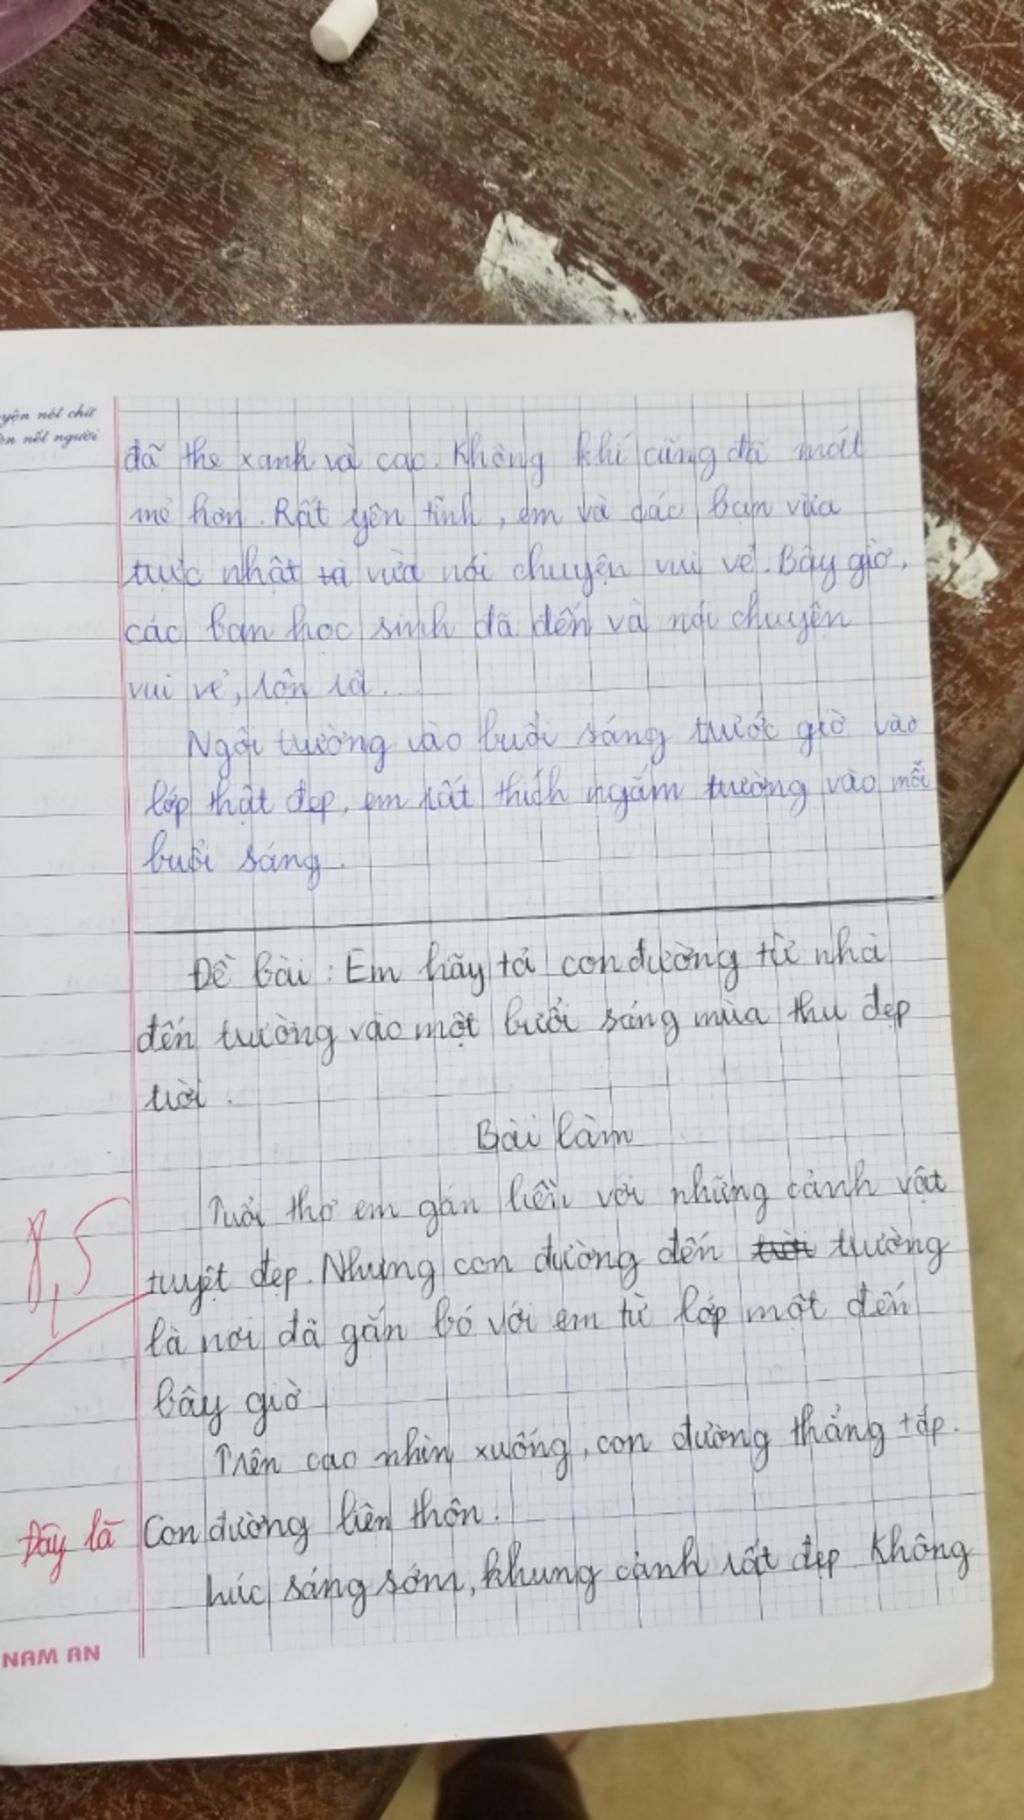 yện nét chữ
ện nết người
đã the xanh và cao. Không khí cũng đã mát
mẻ hơn. Rất yên tĩnh, em và các bạn vừa
trực nhật và vừa nói chuyện vui vẻ. Bây giờ,
các bạn học sinh đã đến và nói chuyện
vui vẻ, rộn rã.
Ngôi trường vào buổi sáng trước giờ vào
lớp thật đẹp, em rất thích ngắm trường vào mỗi
buổi sáng.
Đề bài: Em hãy tả con đường từ nhà
đến trường vào một buổi sáng mùa thu đẹp
trời.
Bài làm
8,5
Tuổi thơ em gắn liền với những cảnh vật
tuyệt đẹp. Nhưng con đường đến trường
là nơi đã gắn bó với em từ lớp một đến
bây giờ
Trên cao nhìn xuống, con đường thẳng tắp.
Đây là Con đường liên thôn.
Lúc sáng sớm, khung cảnh rất đẹp. Không
NAM AN